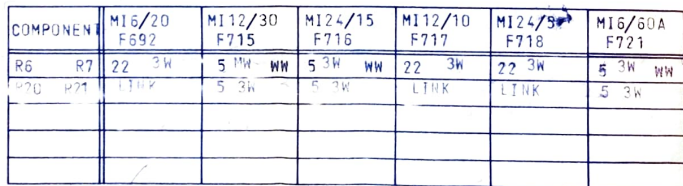 COMPONENT MI6/20 F692 MI12/30 F715 MI24/15 F716 MI12/10 F717 MI24/5 F718 MI6/60A F721
R6 R7 22 3W 5 MW WW 5 3W WW 22 3W 22 3W 5 3W WW
R20 R21 LINK 5 3W 5 3W LINK LINK 5 3W